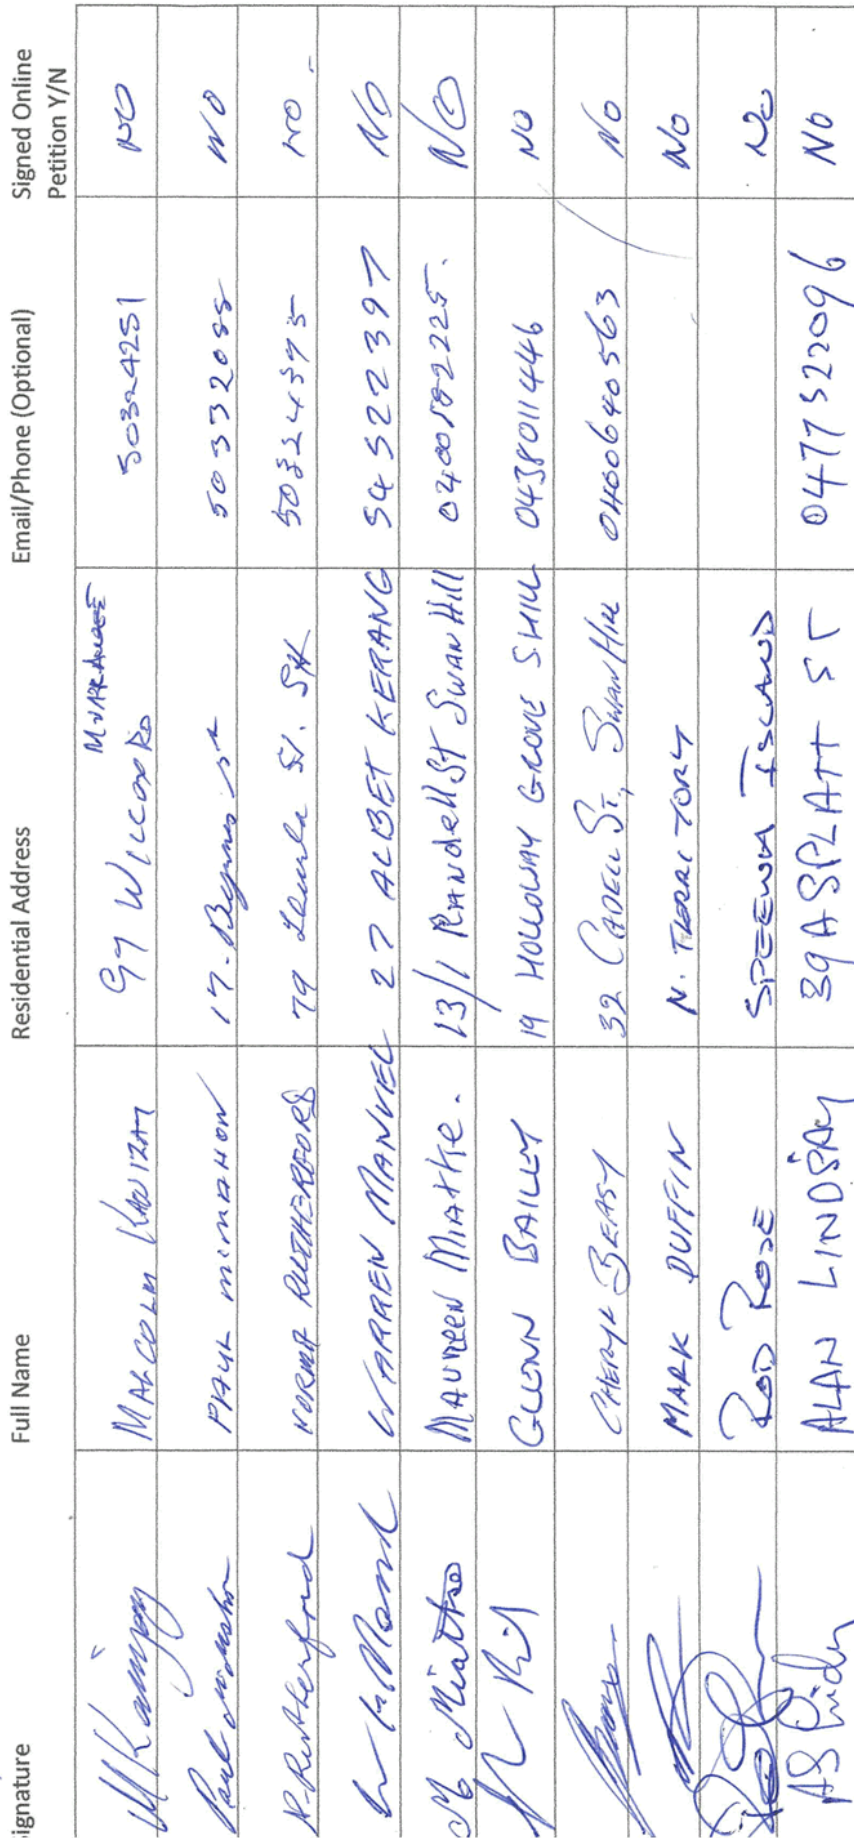 Signature Full Name Residential Address Email/Phone (Optional) Signed Online
Petition Y/N
MALCOLM 97 WILLCOX RD 50324251 NO
PAUL McMAHON 17. St 50332088 NO
R. Rutherford NORMA RUTHERFORD 79 St. SH 50324575 NO -
WARREN MANUEL 27 ALBET KERANG 54522397 NO
M Miathe MAUREEN MIATHE. 13/1 RANDELL ST SWAN HILL 0400592225. NO
GLENN BAILEY 19 HOLLOWAY GROVE S.HILL 0438011446 NO
CHERYL BEASY 32 CADELL ST, SWAN HILL 0400640563 NO
MARK DUFFIN N. TERRITORY NO
ROD ROSE SPEEWA ISLAND NO
ALAN LINDSAY 39 ASPLATT ST 0477322096 NO